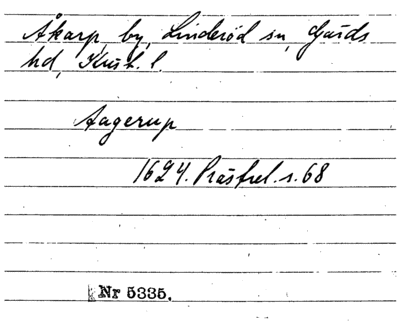 Åkarp, by, Linderöd sn, Gärds
hd, Krist. l.
Aagerup
1624. Prästrel. s. 68
Nr 5335.